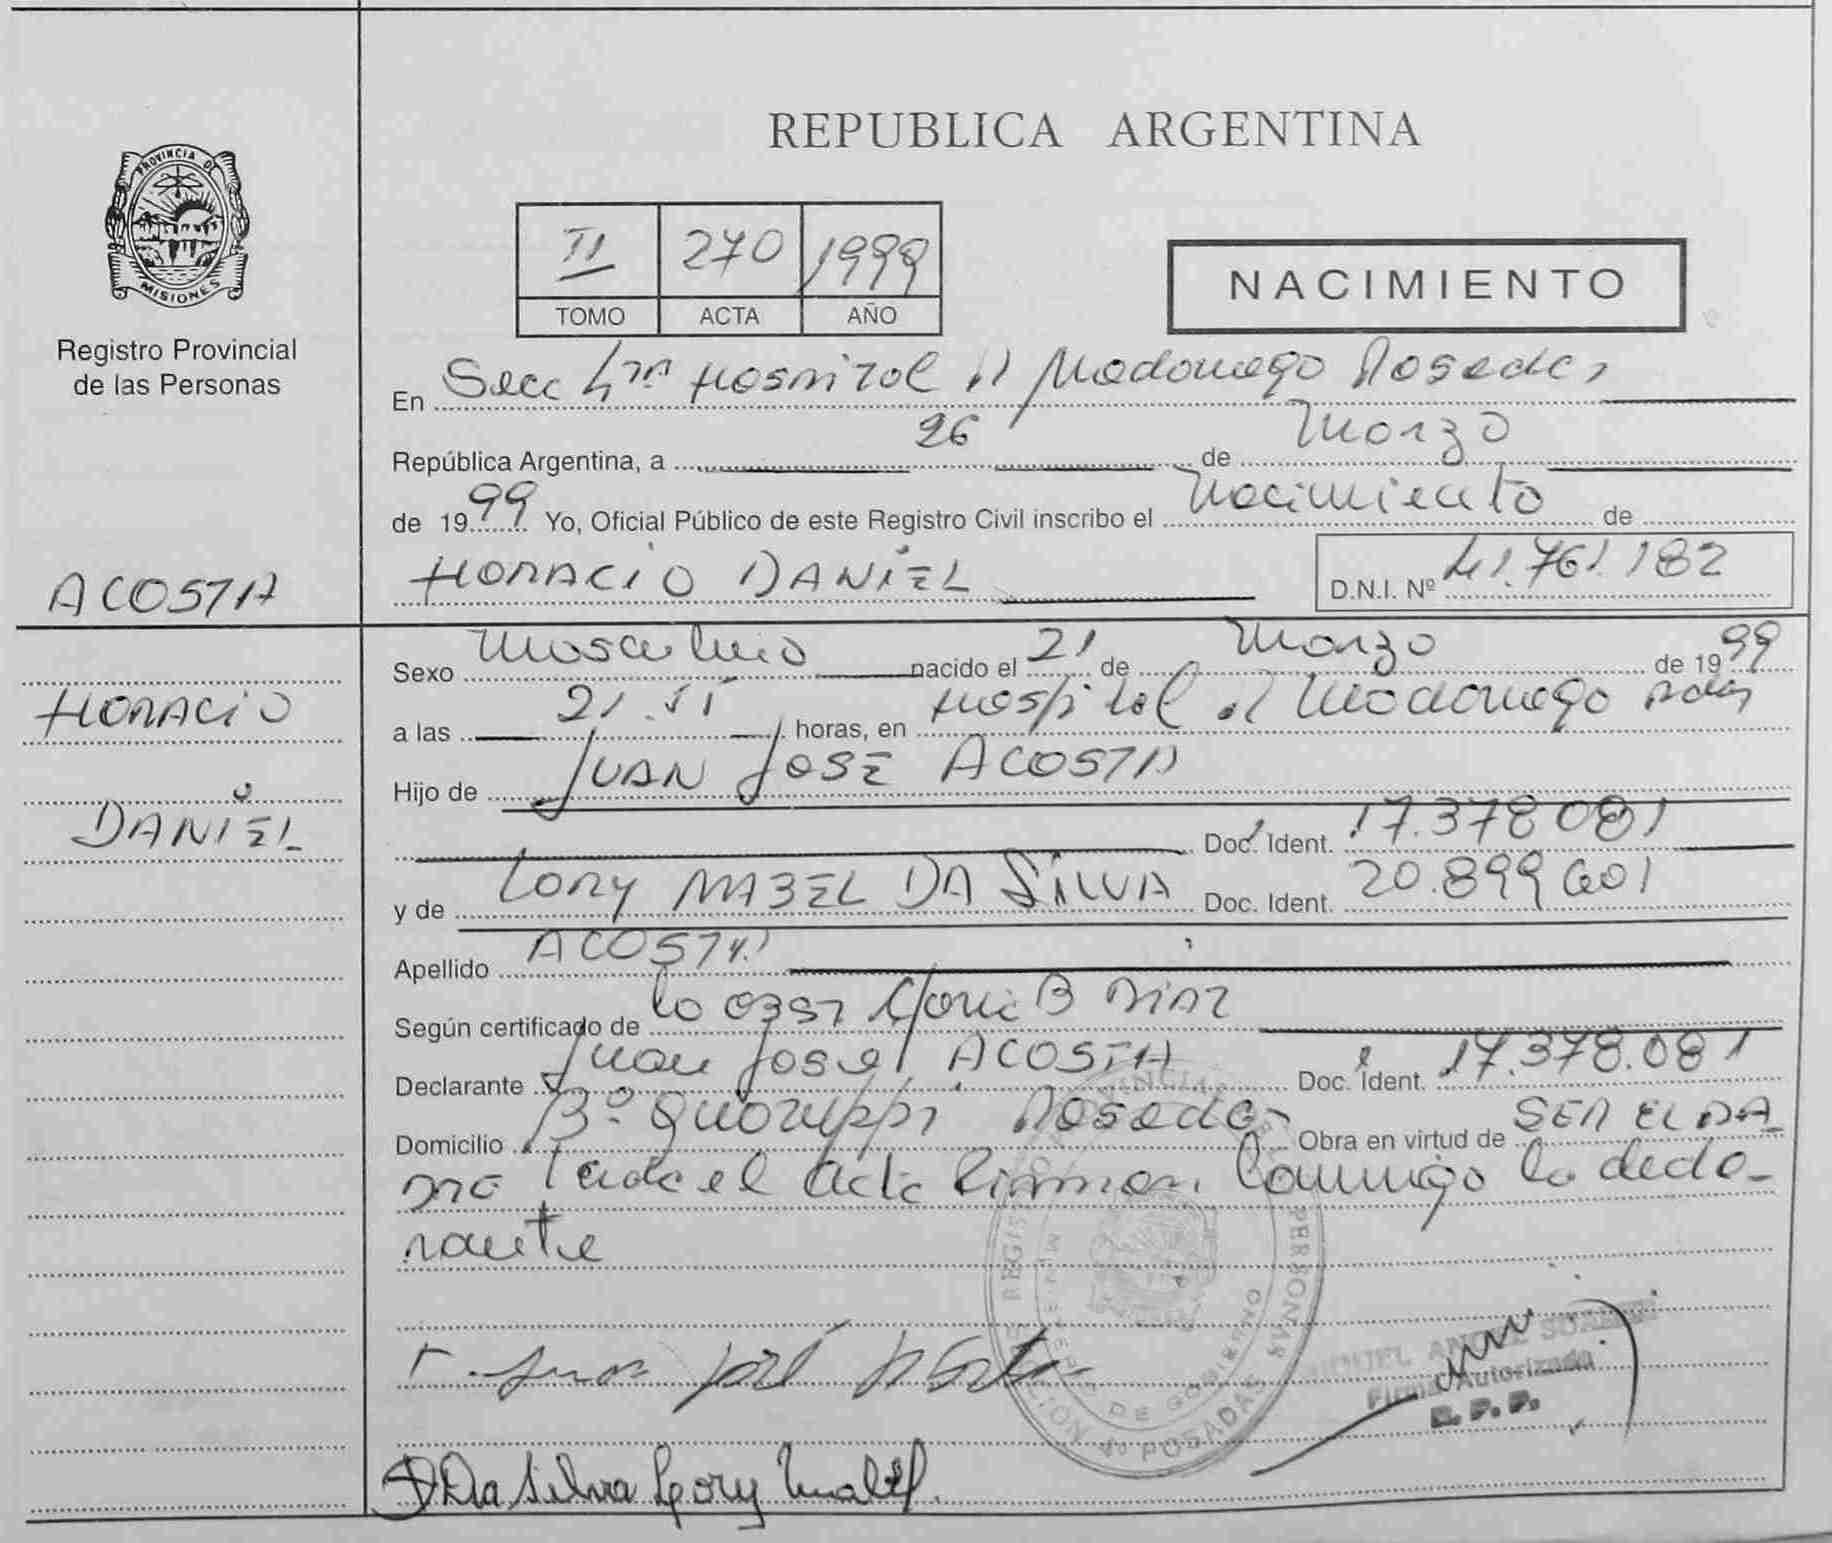 PROVINCIA DE
MISIONES
Registro Provincial
de las Personas
ACOSTA
HORACIO
DANIEL
REPUBLICA ARGENTINA
II 270 1999
TOMO ACTA AÑO
NACIMIENTO
En Secc 4ta Hospital Dr Madariaga Posadas
República Argentina, a 26 de Marzo
de 1999 Yo, Oficial Público de este Registro Civil inscribo el Nacimiento de
HORACIO DANIEL D.N.I. Nº 41.761.182
Sexo Masculino nacido el 21 de Marzo de 1999
a las 21. horas, en Hospital Dr Madariaga Pdas
Hijo de JUAN JOSE ACOSTA
Doc. Ident. 17.378.081
y de Lory MABEL DA SILVA Doc. Ident. 20.899.601
Apellido ACOSTA
Según certificado de la Obst B DIAZ
Declarante Juan Jose ACOSTA Doc. Ident. 17.378.081
Domicilio Bº Posadas Obra en virtud de SER EL PA
DRE Leida el Acta Firman Conmigo la decla-
rante
Juan José Acosta
REGISTRO PROVINCIAL PERSONAS
MINISTERIO DE GOBIERNO
POSADAS
ANGEL
Firma Autorizada
R. P. P.
Da Silva Lory Mabel.